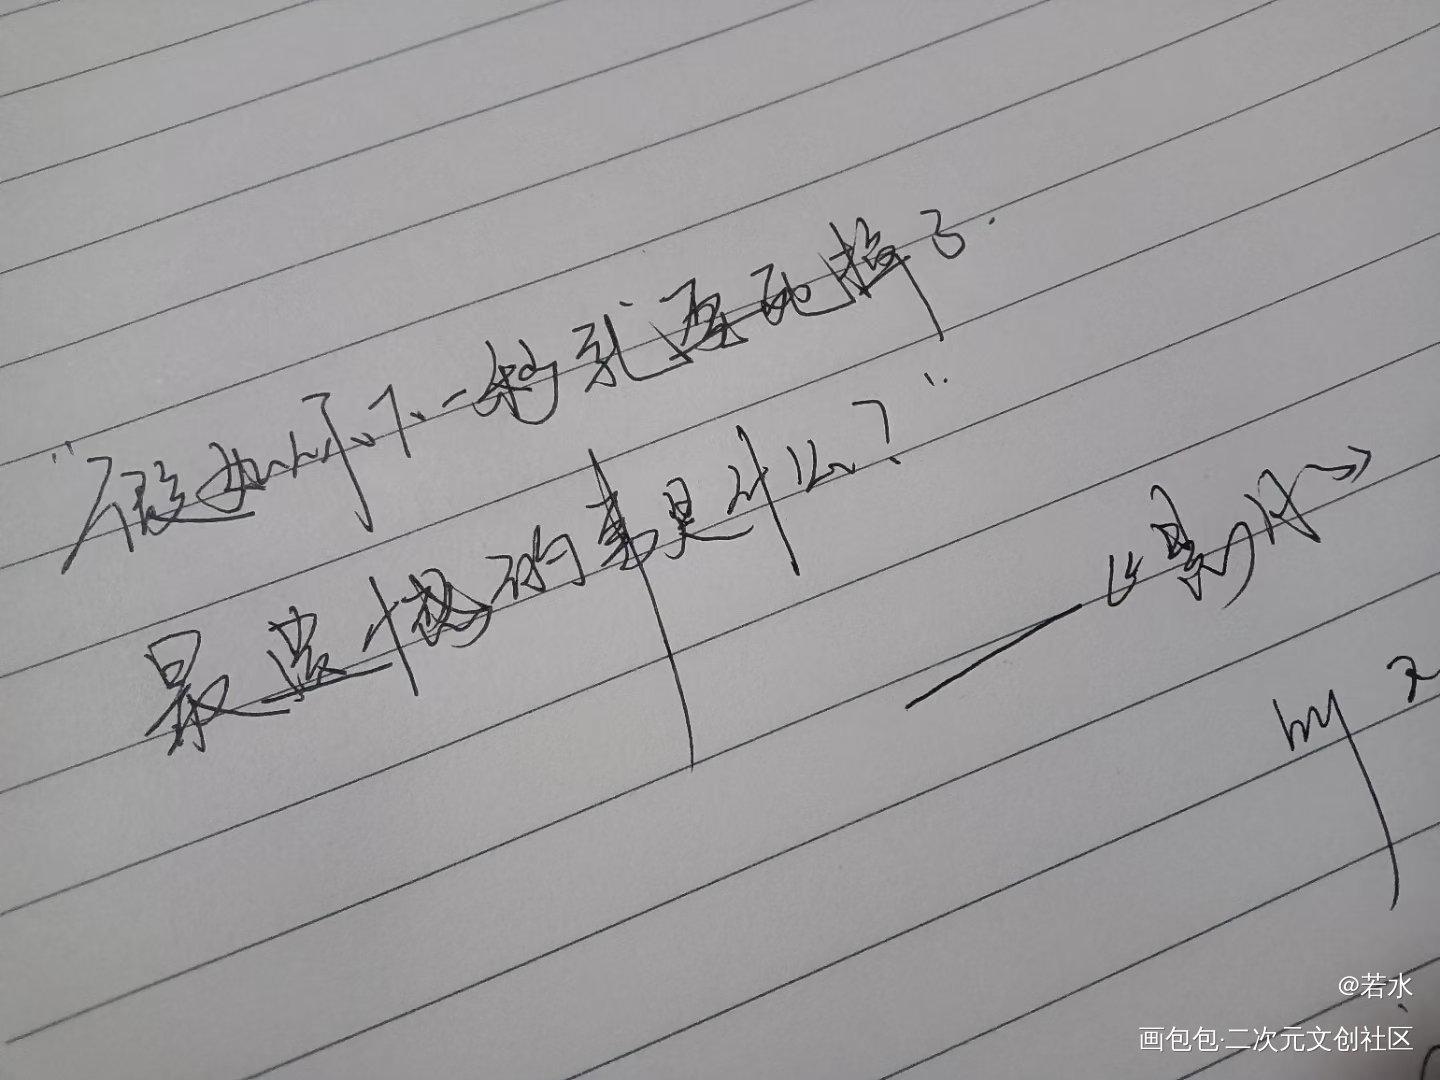 “假如你下一秒就要死掉了.
最遗憾的事是什么?”
——《影月》
by
@若水
画包包·二次元文创社区